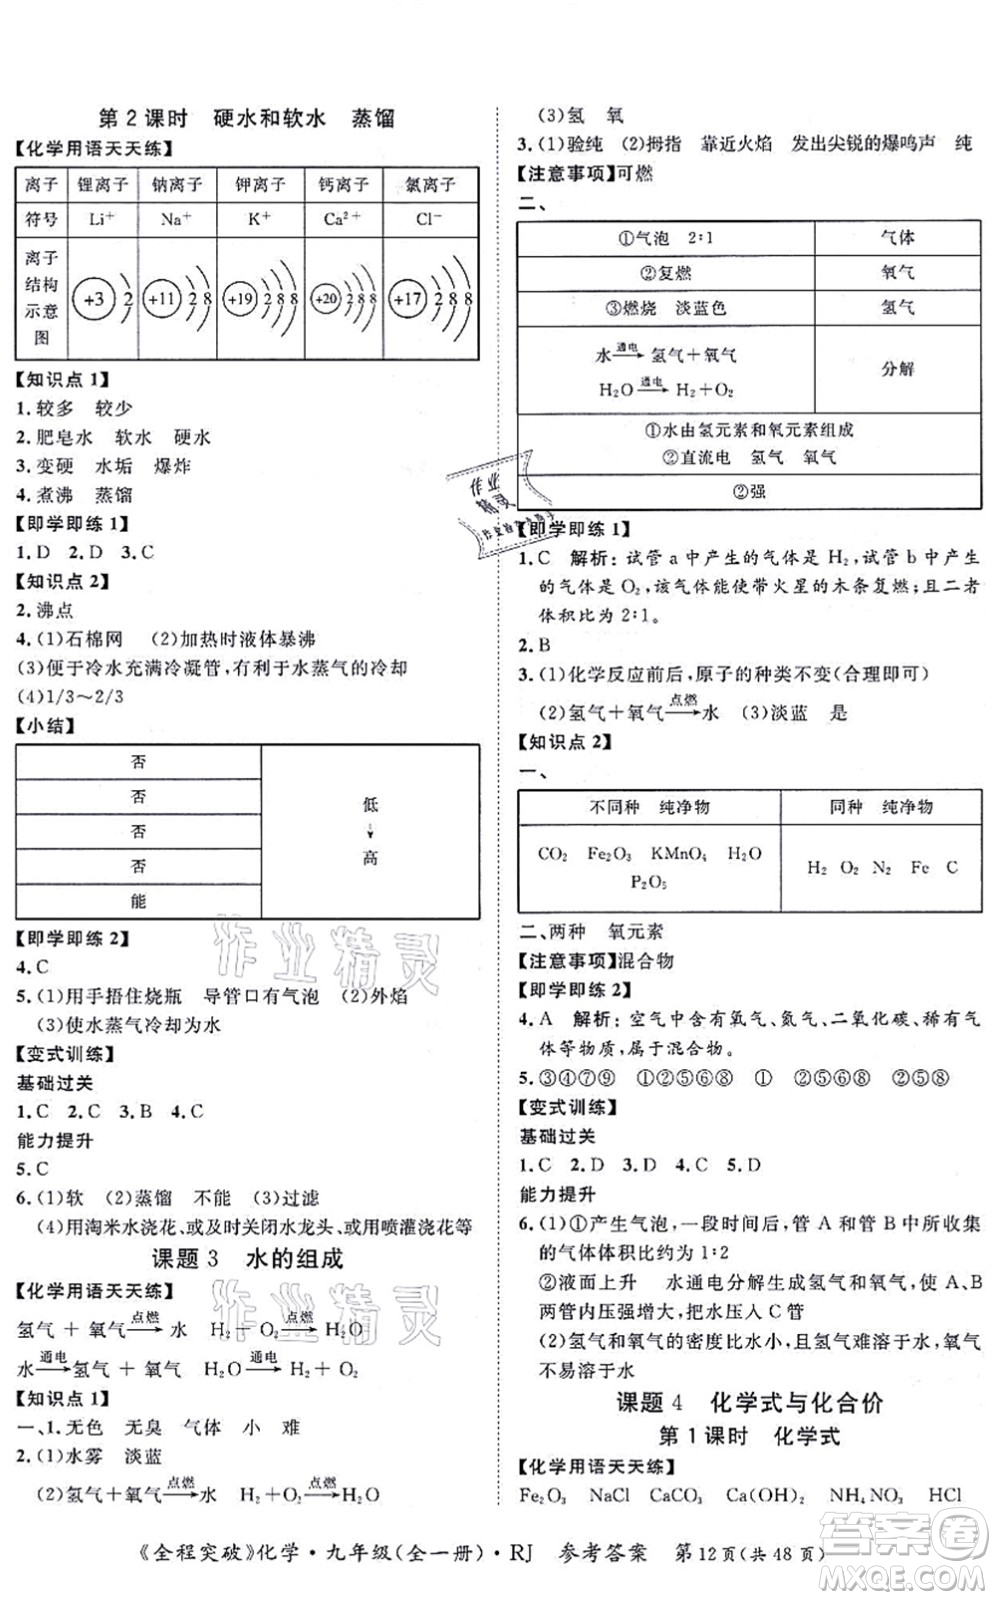 第2课时　硬水和软水　蒸馏
【化学用语天天练】
离子　锂离子　钠离子　钾离子　钙离子　氯离子
符号　Li⁺　Na⁺　K⁺　Ca²⁺　Cl⁻
离子
结构
示意
图
+3 2　+11 2 8　+19 2 8 8　+20 2 8 8　+17 2 8 8
【知识点 1】
1. 较多　较少
2. 肥皂水　软水　硬水
3. 变硬　水垢　爆炸
4. 煮沸　蒸馏
【即学即练 1】
1. D　2. D　3. C
【知识点 2】
2. 沸点
4. (1)石棉网　(2)加热时液体暴沸
(3)便于冷水充满冷凝管,有利于水蒸气的冷却
(4)1/3～2/3
【小结】
否
否
否
否
能
低
↓
高
【即学即练 2】
4. C
5. (1)用手捂住烧瓶　导管口有气泡　(2)外焰
(3)使水蒸气冷却为水
【变式训练】
基础过关
1. C　2. C　3. B　4. C
能力提升
5. C
6. (1)软　(2)蒸馏　不能　(3)过滤
(4)用淘米水浇花、或及时关闭水龙头、或用喷灌浇花等
课题 3　水的组成
【化学用语天天练】
氢气 + 氧气 点燃→ 水　H₂ + O₂ 点燃→ H₂O
水 通电→ 氢气 + 氧气　H₂O 通电→ H₂ + O₂
【知识点 1】
一、1. 无色　无臭　气体　小　难
2. (1)水雾　淡蓝
(2)氢气+氧气 点燃→ 水　H₂+O₂ 点燃→ H₂O
(3)氢　氧
3. (1)验纯　(2)拇指　靠近火焰　发出尖锐的爆鸣声　纯
【注意事项】可燃
二、
①气泡　2∶1　气体
②复燃　氧气
③燃烧　淡蓝色　氢气
水 通电→ 氢气+氧气
H₂O 通电→ H₂+O₂
分解
①水由氢元素和氧元素组成
②直流电　氢气　氧气
②强
【即学即练 1】
1. C　解析:试管 a 中产生的气体是 H₂,试管 b 中产生
的气体是 O₂,该气体能使带火星的木条复燃;且二者
体积比为 2∶1。
2. B
3. (1)化学反应前后,原子的种类不变(合理即可)
(2)氢气+氧气 点燃→ 水　(3)淡蓝　是
【知识点 2】
一、
不同种　纯净物　同种　纯净物
CO₂　Fe₂O₃　KMnO₄　H₂O
P₂O₅
H₂　O₂　N₂　Fe　C
二、两种　氧元素
【注意事项】混合物
【即学即练 2】
4. A　解析:空气中含有氧气、氮气、二氧化碳、稀有气
体等物质,属于混合物。
5. ③④⑦⑨　①②⑤⑥⑧　①　②⑤⑥⑧　②⑤⑧
【变式训练】
基础过关
1. C　2. D　3. D　4. C　5. D
能力提升
6. (1)①产生气泡,一段时间后,管 A 和管 B 中所收集
的气体体积比约为 1∶2
②液面上升　水通电分解生成氢气和氧气,使 A、B
两管内压强增大,把水压入 C 管
(2)氢气和氧气的密度比水小,且氢气难溶于水,氧气
不易溶于水
课题 4　化学式与化合价
第 1 课时　化学式
【化学用语天天练】
Fe₂O₃　NaCl　CaCO₃　Ca(OH)₂　NH₄NO₃　HCl
《全程突破》化学·九年级(全一册)·RJ　参考答案　第 12 页(共 48 页)
作业精灵
作业精灵
作业
精灵
作业检查小助手
答案圈
MXQE.COM